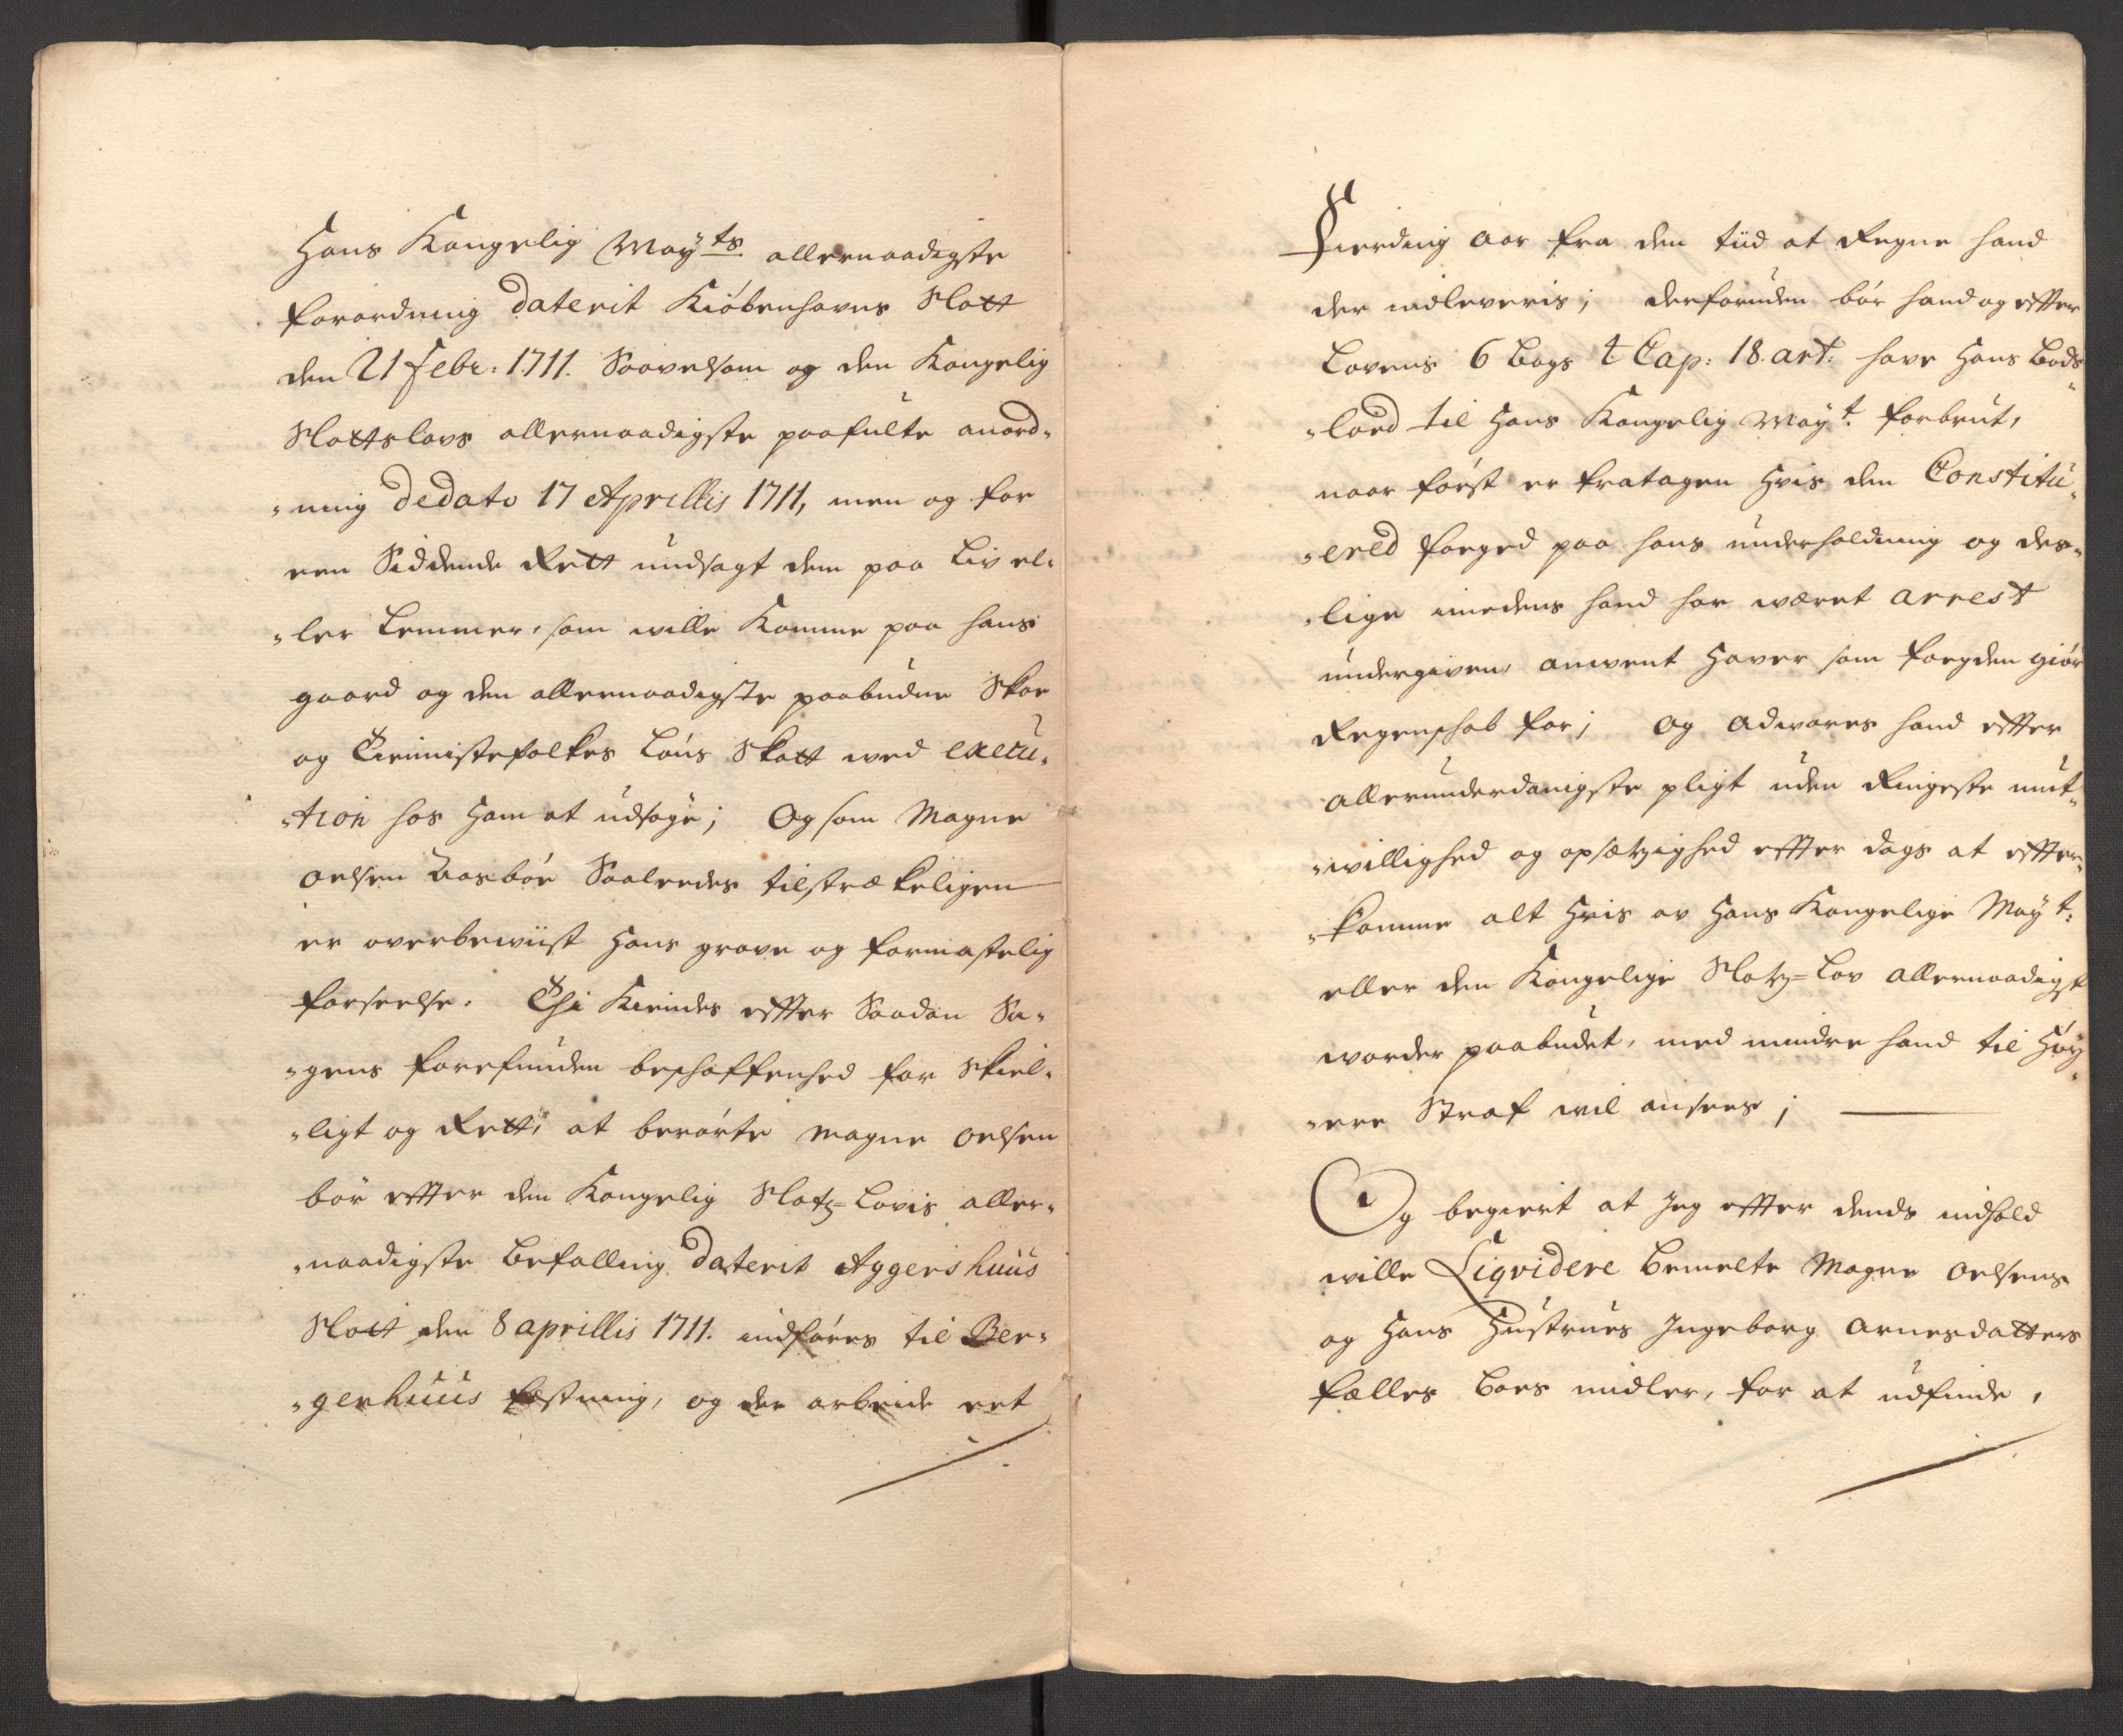 Hans Kongelig Mayts allernaadigste
forordning Daterit Kiöbenhavns Slott
den 21 Febr: 1711. Saavelsom og den Kongelig
Slottslovs allernaadigste paafulte anord-
-ning Dedato 17 Aprillis 1711, men og for
een Siddende Rett undsagt dem paa Liv el-
-ler Lemmer, som wille Komme paa hans
gaard og den allernaadigste paabudne Skoe
og Tienistefolkes Löns Skatt wed execu-
-tion hos ham at udsöge; Og som Magne
Oelsen Aasböe Saaleedes tilstrækeligen
er overbewiist Hans grove og formastelig
forseelse. Thi Kiendes effter Saadan Sa-
-gens forefunden beschaffenhed for Skiel-
-ligt og Rett, at berörte Magne Oelsen
bör effter den Kongelig Slotz-Lovis aller-
-naadigste Befalling Daterit Aggershuus
Slott den 8 aprillis 1711. indföres til Ber-
-genhuus fæstning, og der arbeide eet
Fierding aar fra den tiid at Regne hand
der indleveris; derforuden bör hand og effter
Lovens 6 Bogs 4 Cap: 18. art: have Hans Bods
-lood til Hans Kongelig Mayt. forbrut,
naar först er fratagen Hvis den Constitu-
-ered foeged paa hans underholdning og des-
-lige imedens hand har wæret arrest
undergiven, anvent Haver som foegden giör
Regenschab for; og advares hand effter
allerunderdanigste pligt uden Ringeste mut-
-willighed og opsætzighed effter dags at effter-
-komme alt Hvis av Hans Kongelige Mayt:
eller den Kongelige Slotz-Lov allernaadigst
worder paabudet, med mindre hand til Höy-
-ere Straf wil ansees;
Og begiert at Jeg effter dends indhold
wille Liqvidere Bemelte Magne Oelsens
og Hans Hustrues Ingeborg Arnesdatters
fælles Boes midler, for at udfinde,